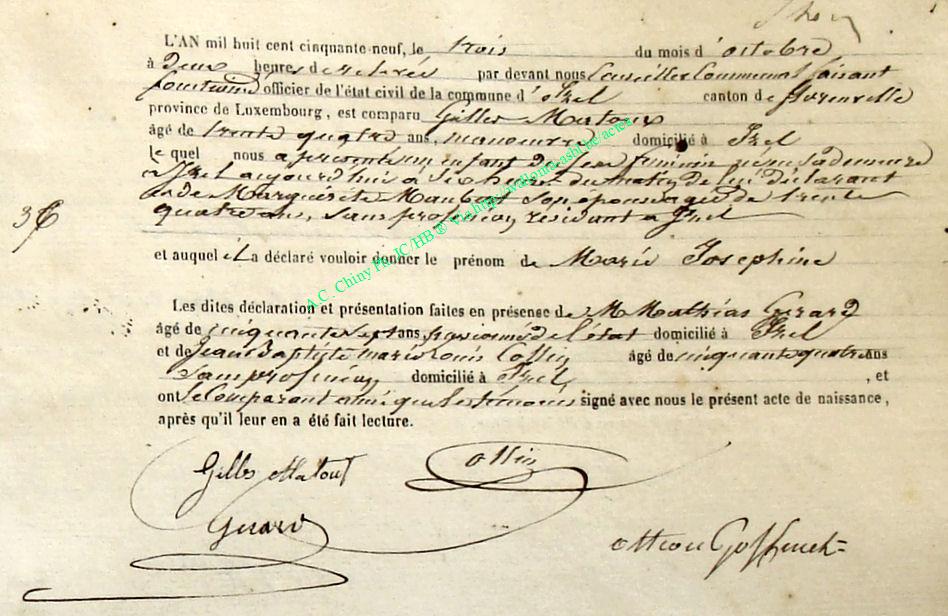 L'AN mil huit cent cinquante-neuf, le trois du mois d'octobre
à deux heures de relevée par devant nous Conseiller Communal faisant
fonctions d'officier de l'état civil de la commune d'Izel canton de Florenville
province de Luxembourg, est comparu Gilles
âgé de trente quatre ans, manoeuvre domicilié à Izel
le quel nous a présenté un enfant du sexe féminin né en sa demeure
à Izel aujourd'hui à six heures du matin de lui déclarant
et de Marguerite son épouse agée de trente
quatre ans, sans profession, résidant a Izel
36
et auquel il a déclaré vouloir donner le prénom de Marie Josephine
Les dites déclaration et présentation faites en présense de M Mathias Gerard
âgé de cinquante sept ans, pensionné de l'état domicilié à Izel
et de Jean Baptiste marie louis Collin âgé de cinquante quatre ans
sans profession domicilié à Izel, et
ont le Comparant ainsi que les témoins signé avec nous le présent acte de naissance,
après qu'il leur en a été fait lecture.
Gilles
Gerard
A.C. Chiny Ph JC/HB ® Via http://wallonia-asbl.be/actes